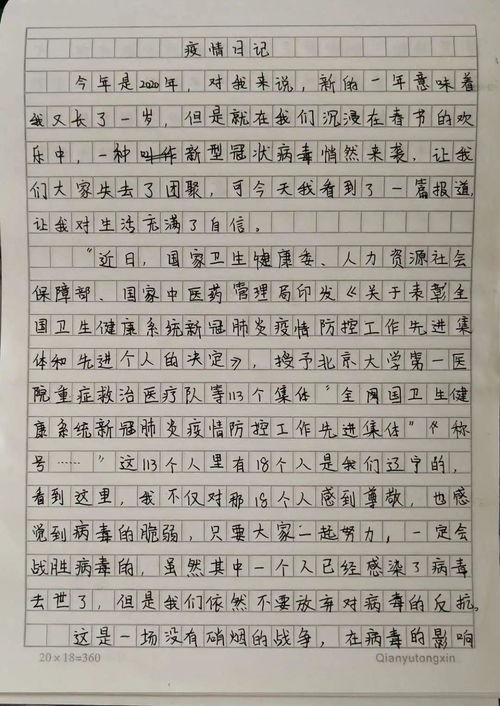 疫情日记
今年是2020年，对我来说，新的一年意味着
我又长了一岁，但是就在我们沉浸在春节的欢
乐中，一种叫作新型冠状病毒悄然来袭，让我
们大家失去了团聚，可今天我看到了一篇报道，
让我对生活充满了自信。
“近日，国家卫生健康委、人力资源社会
保障部、国家中医药管理局印发《关于表彰全
国卫生健康系统新冠肺炎疫情防控工作先进集
体和先进个人的决定》，授予北京大学第一医
院重症救治医疗队等113个集体“全网国卫生健
康系统新冠肺炎疫情防控工作先进集体”《称
号……”这113个人里有18个人是我们辽宁的，
看到这里，我不仅对那18个人感到尊敬，也感
觉到病毒的脆弱，只要大家一起努力，一定会
战胜病毒的，虽然其中一个人已经感染了病毒
去世了，但是我们依然不要放弃对病毒的反抗。
这是一场没有硝烟的战争，在病毒的影响
20×18=360 Qianyutongxin